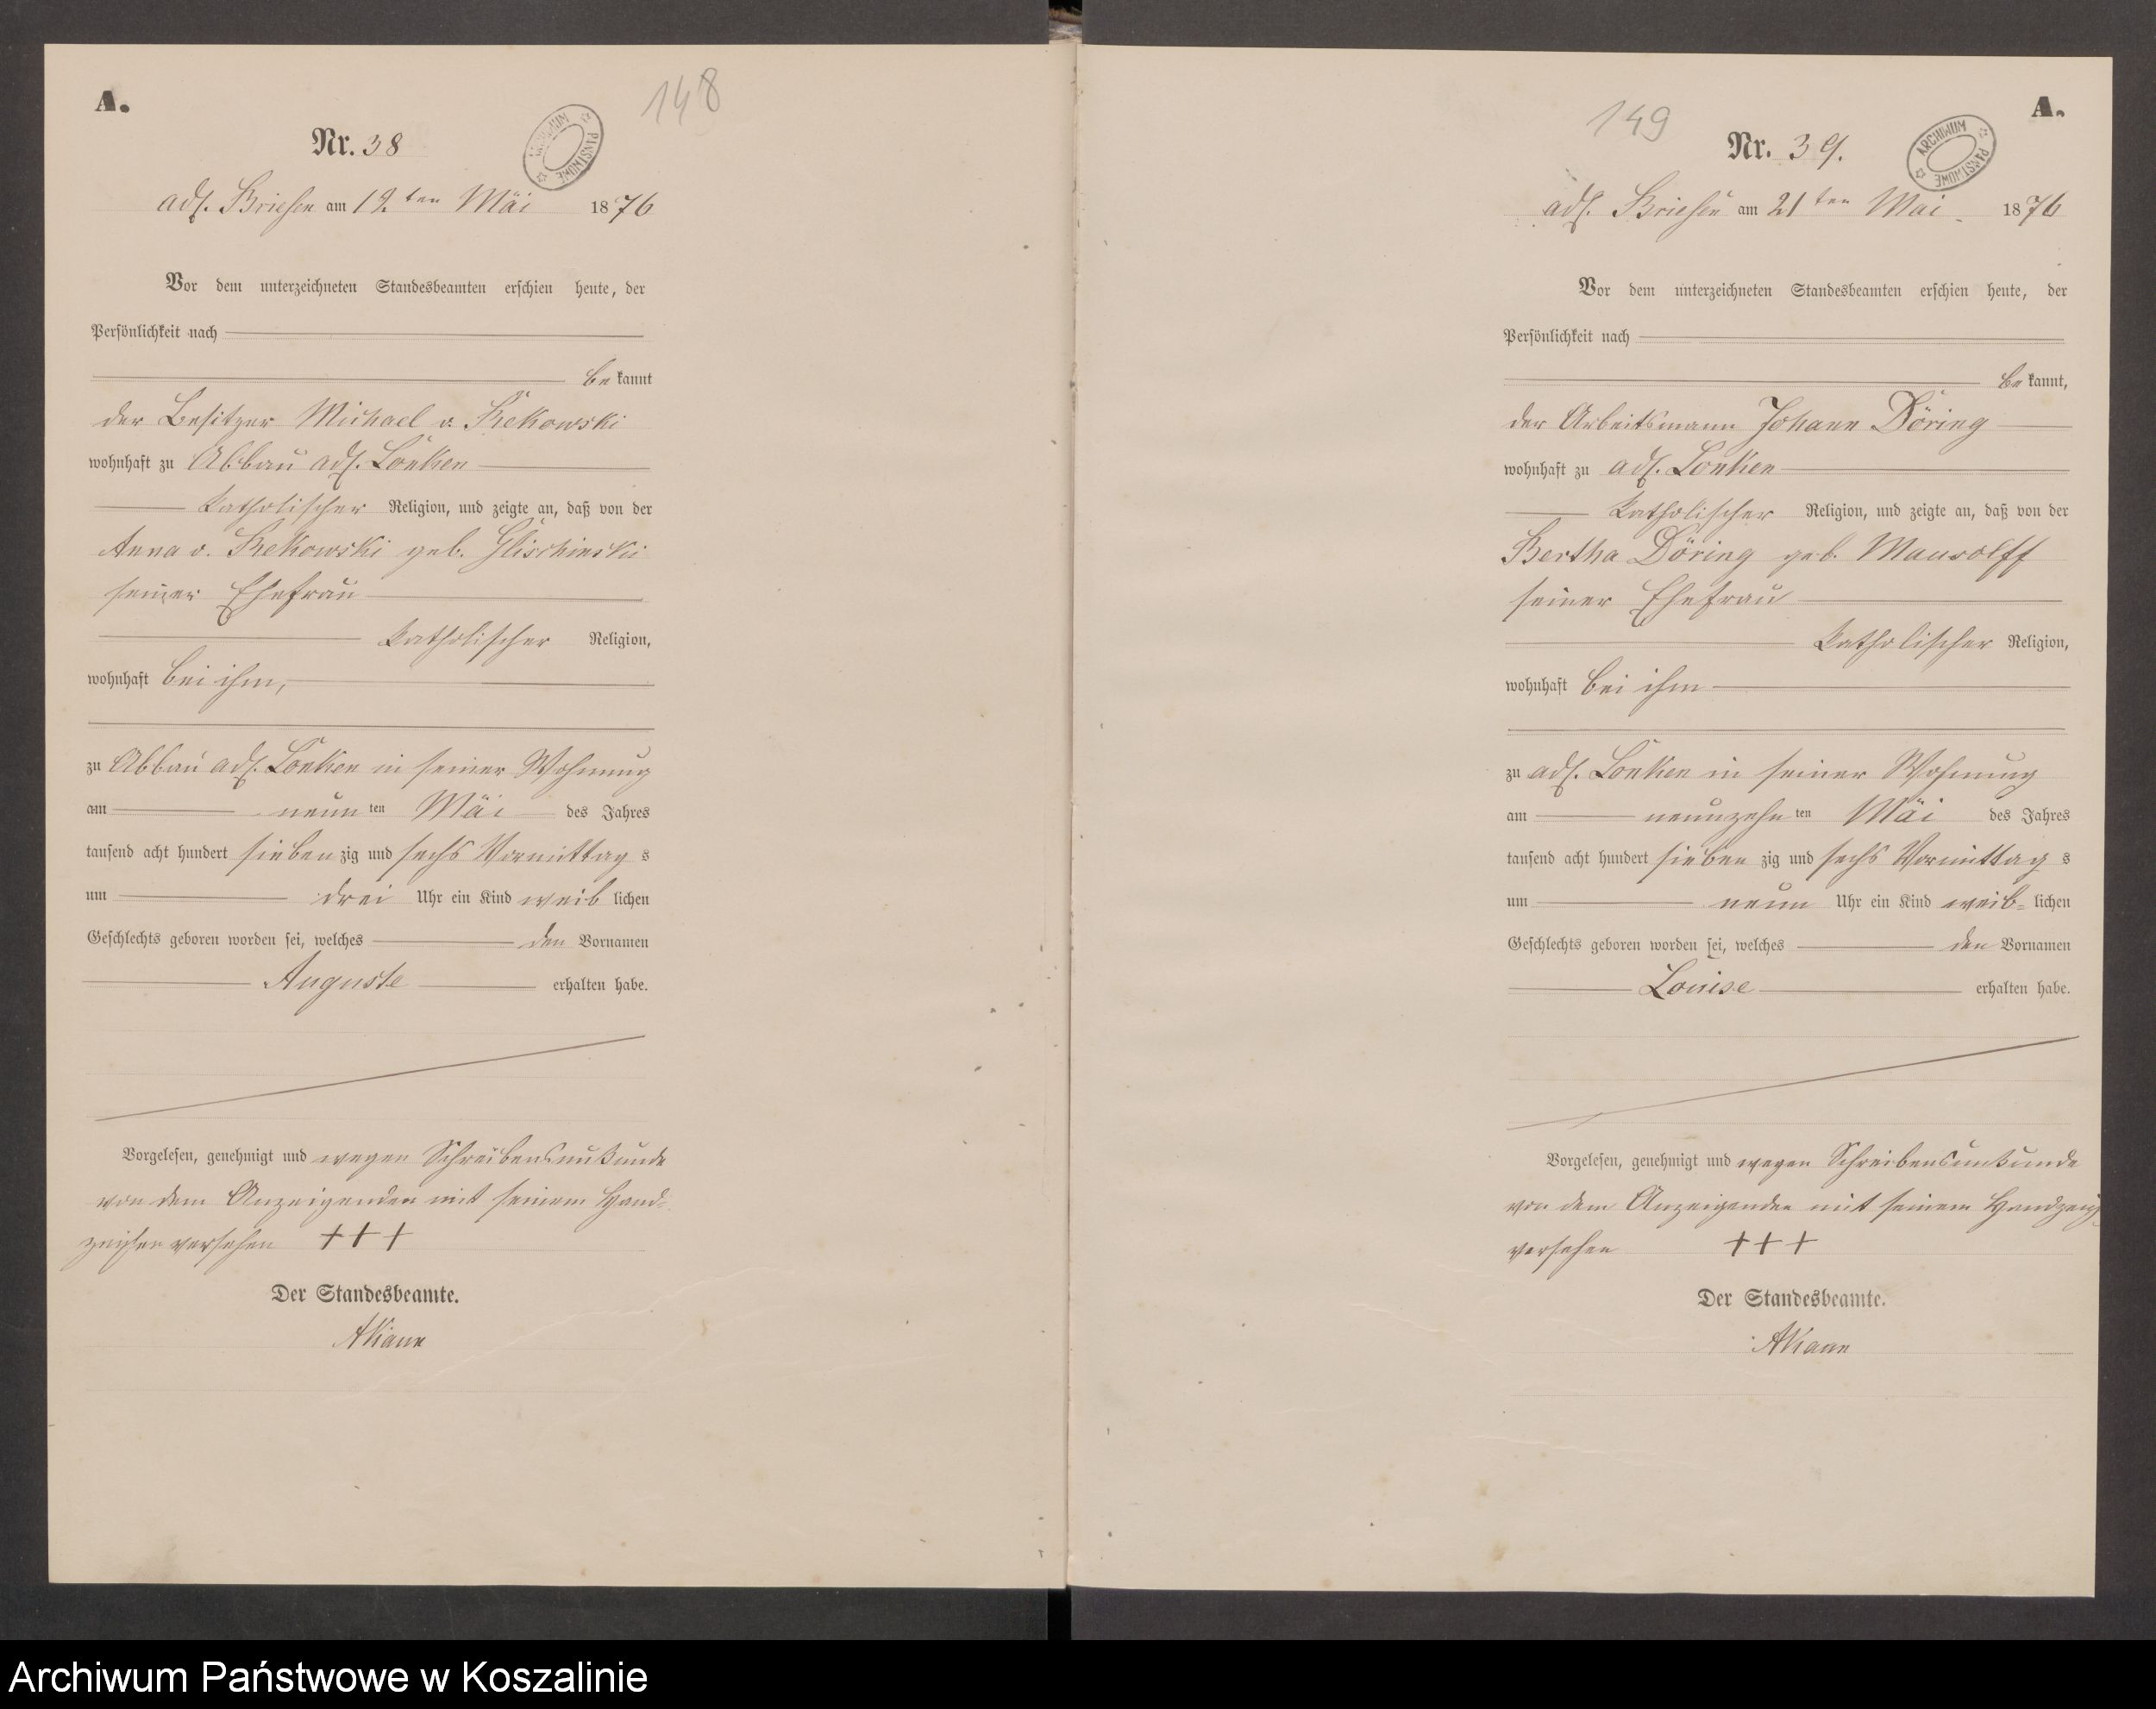 148
A.
Nr. 38
ARCHIWUM PAŃSTWOWE
adl. Briesen am 12ten Mai 1876
Vor dem unterzeichneten Standesbeamten erschien heute, der
Persönlichkeit nach
be kannt
der Besitzer Michael v. Rekowski
wohnhaft zu Abbau adl. Lonken
katholischer Religion, und zeigte an, daß von der
Anna v. Rekowski geb. Glischinski
seiner Ehefrau
katholischer Religion,
wohnhaft bei ihm,
zu Abbau adl. Lonken in seiner Wohnung
am neun ten Mai des Jahres
tausend acht hundert sieben zig und sechs Vormittag s
um drei Uhr ein Kind weib lichen
Geschlechts geboren worden sei, welches den Vornamen
Auguste erhalten habe.
Vorgelesen, genehmigt und wegen Schreibensunkunde
von dem Anzeigenden mit seinem Hand-
zeichen versehen +++
Der Standesbeamte.
149
A.
Nr. 39.
ARCHIWUM PAŃSTWOWE
adl. Briesen am 21ten Mai 1876
Vor dem unterzeichneten Standesbeamten erschien heute, der
Persönlichkeit nach
be kannt,
der Arbeitsmann Johann Döring
wohnhaft zu adl. Lonken
katholischer Religion, und zeigte an, daß von der
Bertha Döring geb. Mausolff
seiner Ehefrau
katholischer Religion,
wohnhaft bei ihm
zu adl. Lonken in seiner Wohnung
am neunzehn ten Mai des Jahres
tausend acht hundert sieben zig und sechs Vormittag s
um neun Uhr ein Kind weib= lichen
Geschlechts geboren worden sei, welches den Vornamen
Louise erhalten habe.
Vorgelesen, genehmigt und wegen Schreibensunkunde
von dem Anzeigenden mit seinem
versehen +++
Der Standesbeamte.
Archiwum Państwowe w Koszalinie